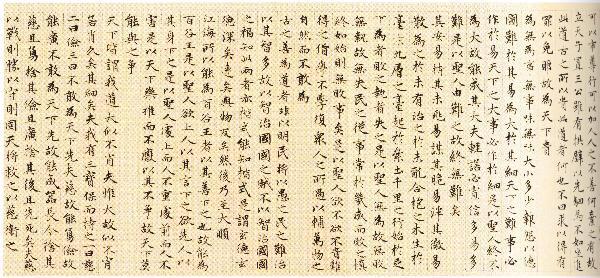 可以市尊行可以加人人之不善何棄之有故
立天子置三公雖有拱璧以先駟馬不如坐進
此道古之所以貴此道者何也不曰求以得有
罪以免耶故為天下貴
為無為事無事味無味大小多少報怨以德
圖難於其易為大於其細天下之難事必
作於易天下之大事必作於細是以聖人終不
為大故能成其大夫輕諾必寡信多易多
難是以聖人由難之故終無難矣
其安易持其未兆易謀其脆易泮其微易
散為之於未有治之於未亂合抱之木生於
毫末九層之臺起於累土千里之行始於足
下為者敗之執者失之是以聖人無為故無敗
無執故無失民之從事常於幾成而敗之慎
終如始則無敗事矣是以聖人欲不欲不貴難
得之貨學不學復眾人之所過以輔萬物之
自然而不敢為
古之善為道者非以明民將以愚之民之難治
以其智多故以智治國國之賊不以智治國國
之福知此兩者亦楷式能知楷式是謂玄德玄
德深矣遠矣與物反矣然後乃至大順
江海所以能為百谷王者以其善下之也故能為
百谷王是以聖人欲上人以其言下之欲先人以
其身下之是以聖人處上而人不重處前而人不
害是以天下樂推而不厭以其不爭故天下莫
能與之爭
天下皆謂我道大似不肖夫惟大故似不肖
若肖久矣其細矣夫我有三寶保而持之一曰慈
二曰儉三曰不敢為天下先夫慈故能勇儉故
能廣不敢為天下先故能成器長今捨其
慈且勇捨其儉且廣捨其後且先死矣夫慈
以戰則勝以守則固天將救之以慈衛之